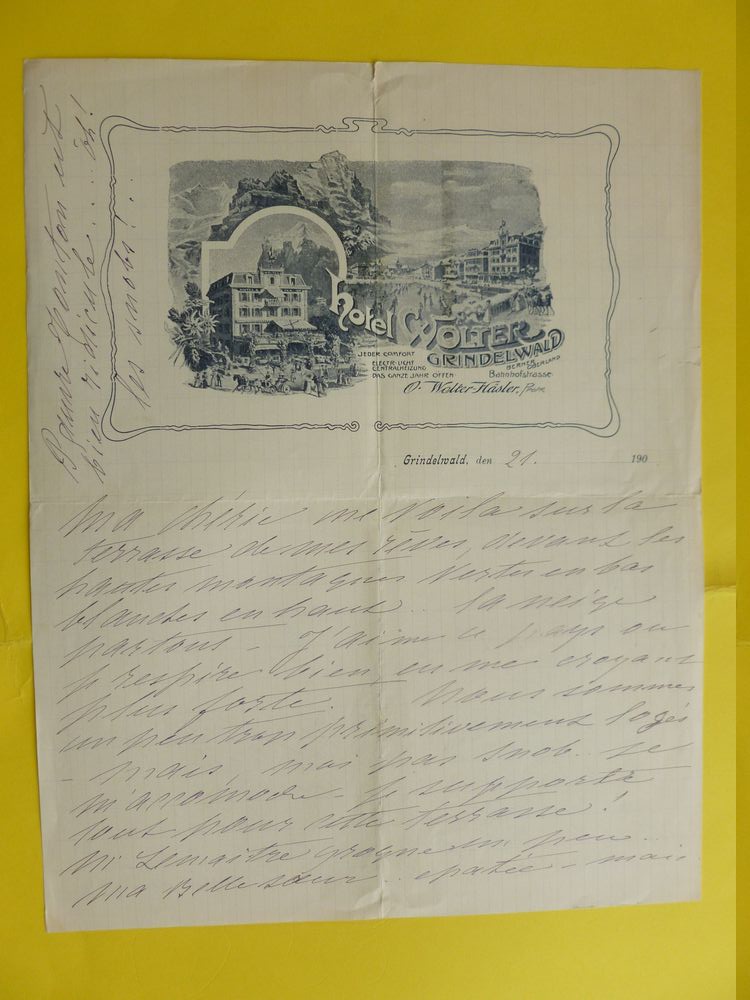 Hotel WOLTER
GRINDELWALD
BERNER OBERLAND
JEDER COMFORT
ELECTR. LICHT
CENTRALHEIZUNG
DAS GANZE JAHR OFFEN
Bahnhofstrasse
O. Wolter-Häsler, Propr.
Grindelwald, den 21. 190
ma chérie me voilà sur la
terrasse de mes rêves, devant les
hautes montagnes vertes en bas
blanches en haut.. la neige
partout - J'aime ce pays où
je respire bien, en me croyant
plus forte. Nous sommes
un peu trop primitivement logés
- mais, moi pas snob.. je
m'accomode - je supporte
tout pour cette terrasse!
Mr Lemaître grogne un peu..
ma Belle sœur.. épatée - mais
Pauvre est
bien ridicule.... oh!
les snobs!..